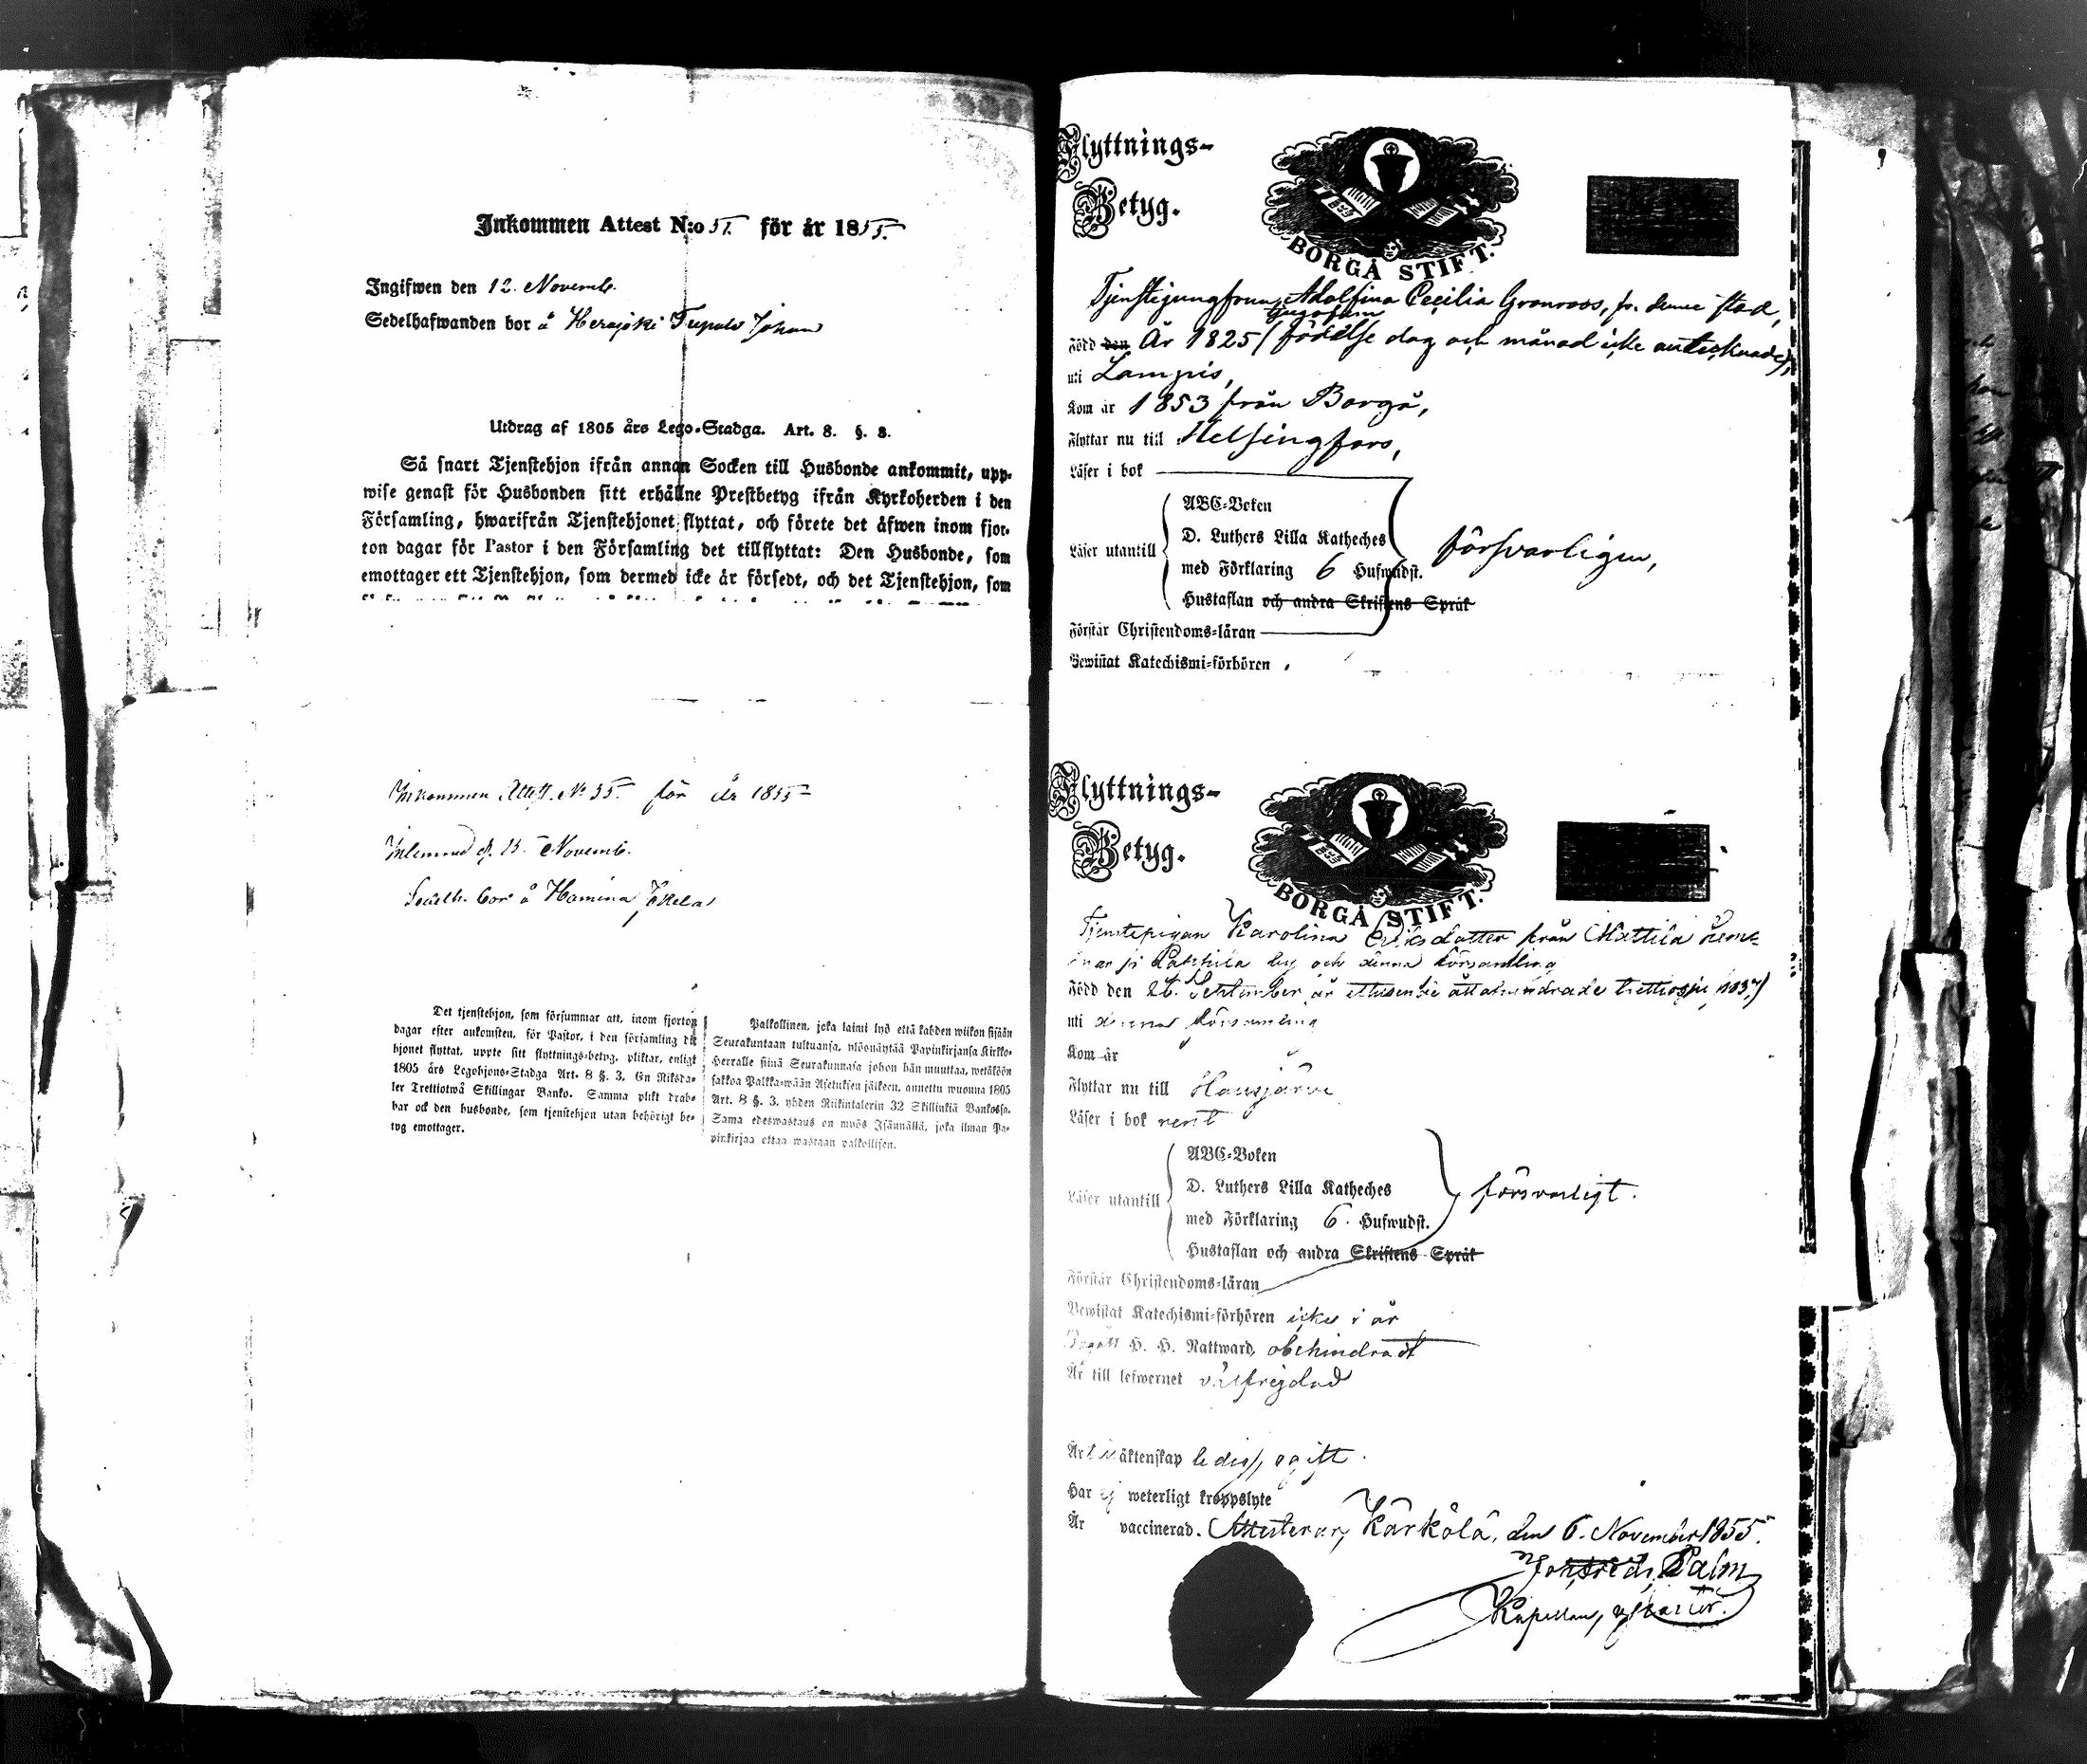 Inkommen Attest N:o 51. för år 1855.
Ingifwen den 12. Novemb.
Sedelhafwanden bor å Herajoki Johan
Utdrag af 1805 års Lego-Stadga. Art. 8. §. 3.
Så snart Tjenstehjon ifrån annan Socken till Husbonde ankommit, upp-
wise genast för Husbonden sitt erhållne Prestbetyg ifrån Kyrkoherden i den
Församling, hwarifrån Tjenstehjonet flyttat, och förete det äfwen inom fjor-
ton dagar för Pastor i den Församling det tillflyttat: Den Husbonde, som
emottager ett Tjenstehjon, som dermed icke är försedt, och det Tjenstehjon, som
Inkommen Attest. No 55. för år 1855
d. 13. Novemb.
bor å Hamina Jokela
Det tjenstehjon, som försummar att, inom fjorton
dagar efter ankomsten, för Pastor, i den församling dit
hjonet flyttat, uppte sitt flyttnings-betyg, pliktar, enligt
1805 års Legohjons-Stadga Art. 8 §. 3, En Riksda-
ler Trettiotwå Skillingar Banko. Samma plikt drab-
bar ock den husbonde, som tjenstehjon utan behörigt be-
tyg emottager.
Palkollinen, joka laimi lyö että kahden wiikon sisään
Seurakuntaan tultuansa, ylösnäytää Papinkirjansa Kirkko-
Herralle siinä Seurakunnasa johon hän muuttaa, wetälöön
sakkoa Palkka-wään Asetuksen jälkeen, annettu wuonna 1805
Art. 8 §. 3. yhden Riikintalerin 32 Skillinkiä Bankossa.
Sama edeswastaus on myös Isännällä, joka ilman Pa-
pinkirjaa ottaa wastaan palkollisen.
Flyttnings-
Betyg.
BORGÅ STIFT.
Tjenstejungfrun, Adolfina Cecilia Granroos, fr. denne stad,
tjugofem
Född den År 1825 (födelse dag och månad icke antecknade),
uti Lampis,
Kom år 1853 från Borgå,
Flyttar nu till Helsingfors,
Läser i bok
Läser utantill
ABC-Boken
D. Luthers Lilla Katheches
med Förklaring 6 Hufwudst.
Hustaflan och andra Skriftens Språk
försvarligen,
Förstår Christendoms-läran
Bewistat Katechismi-förhören
Flyttnings-
Betyg.
BORGÅ STIFT.
Tjenstepigan Karolina Eriksdotter från Mattila hem-
man i by och denna församling
Född den 26. September år ettusende åttahundrade trettiosju (1837)
uti denna församling
Kom år
Flyttar nu till Hausjärvi
Läser i bok rent
Läser utantill
ABC-Boken
D. Luthers Lilla Katheches
med Förklaring 6. Hufwudst.
Hustaflan och andra Skriftens Språk
försvarligt.
Förstår Christendoms-läran
Bewistat Katechismi-förhören icke i år
Begått H. H. Nattward obehindradt
Är till lefwernet välfrejdad
Är till äktenskap ledig, ogift.
Har ej weterligt kroppslyte
Är vaccinerad. Attesterar, Kärkölä, den 6. November 1855.
Palm
Kapellan, Pastor.